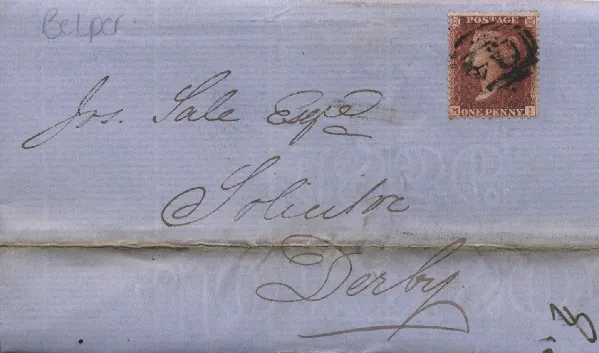 Belper
POSTAGE
ONE PENNY
I
Jos. Sale Esqre
Solicitor
Derby